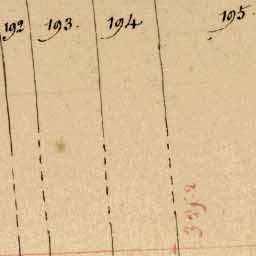 192 193. 194 195.